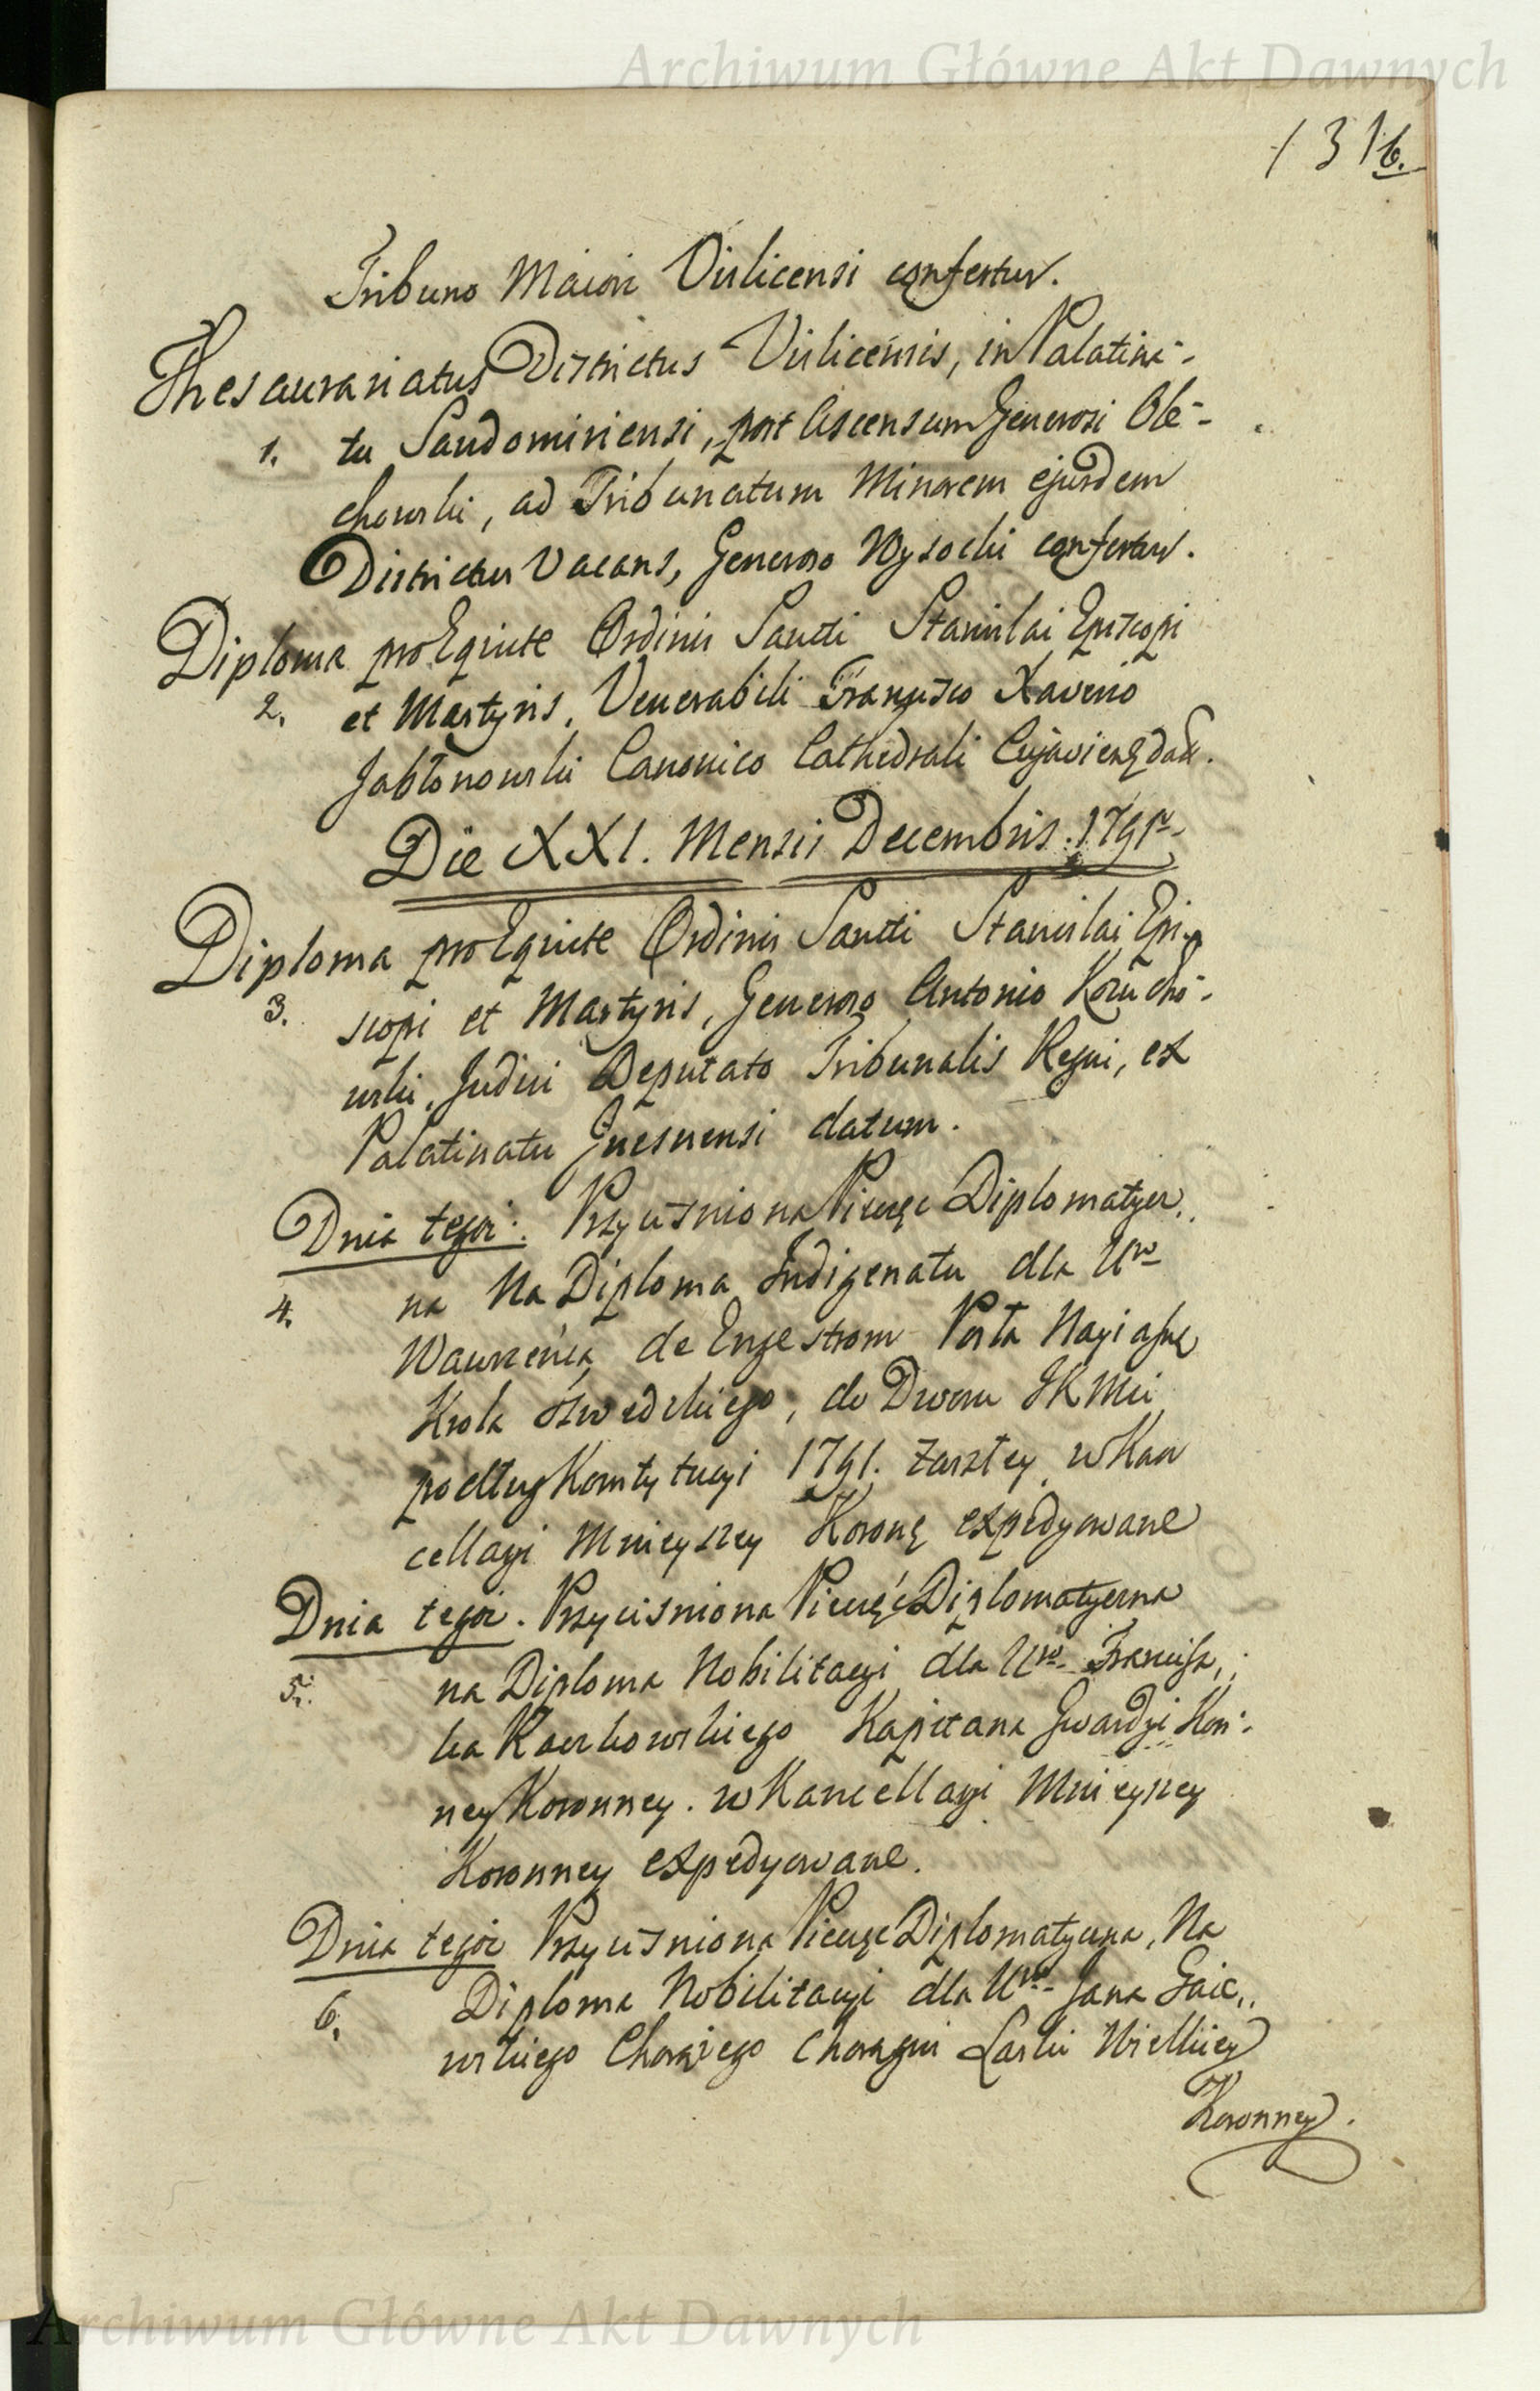 Archiwum Główne Akt Dawnych
1316.
Tribuno Maiori Vislicensi confertur.
Thesaurariatus Districtus Vislicensis, in Palatina-
1. tu Sandomiriensi, post Ascensum Generosi Ole-
chowski, ad Tribunatum Minorem ejusdem
Districtus Vacans, Generoso Wysocki confertur.
Diploma pro Equite Ordinis Sancti Stanislai Episcopi
2. et Martyris, Venerabili Francisco Xaverio
Jabłonowski Canonico Cathedrali Cujavien̄ datt.
Die XXI. Mensis Decembris. 1791.
Diploma pro Equite Ordinis Sancti Stanislai Epi-
3. scopi et Martyris, Generoso Antonio Koucho-
wski, Judici Deputato Tribunalis Regni, ex
Palatinatu Gnesnensi datum.
Dnia tegoż. Przyciśniona Pieczęć Diplomatycz.
4. na Na Diploma Indigenatu dla Uro
Wawrzeńca de Engestrom Posła Nayiaśñ
Krola Szwedzkiego, do Dworu JKMci
podług Konstytucyi 1791. zaszłey w Kan
cellaryi Mnieyszey Koronę expedyowane
Dnia tegoż. Przyciśniona Pieczęć Diplomatyczna
5. na Diploma Nobilitacyi dla Uro Francisz,
ka Kaczkowskiego Kapitana Gwardyi Kon-
ney Koronney. w Kancellaryi Mnieyszey
Koronney expedyowane.
Dnia tegoż Przyciśniona Pieczęć Diplomatyczna, Na
6. Diploma Nobilitacyi dla Uro Jana Gaie,,
wskiego Chorążego Chorągwi Laski Wielkiey
Koronney.
Archiwum Główne Akt Dawnych